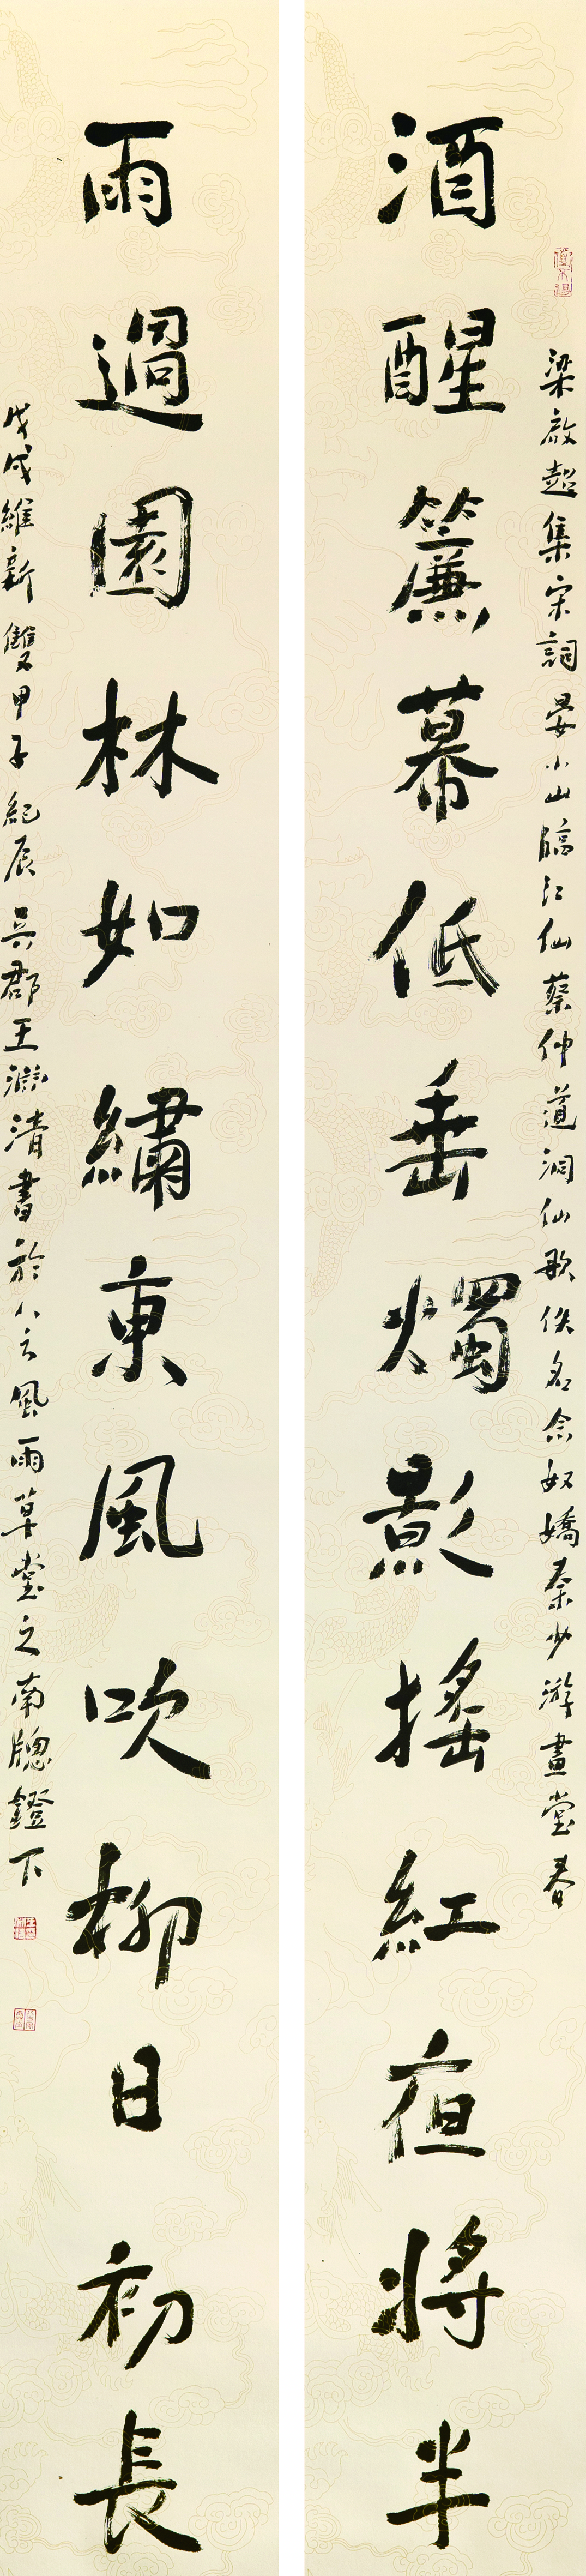 梁啟超集宋詞晏小山臨江仙蔡仲道洞仙歌佚名念奴嬌秦少游畫堂春
酒醒簾幕低垂燭影搖紅夜將半
雨過園林如繡東風吹柳日初長
戊戌維新雙甲子紀辰吳郡王淵清書於風雨草堂之南牕鐙下